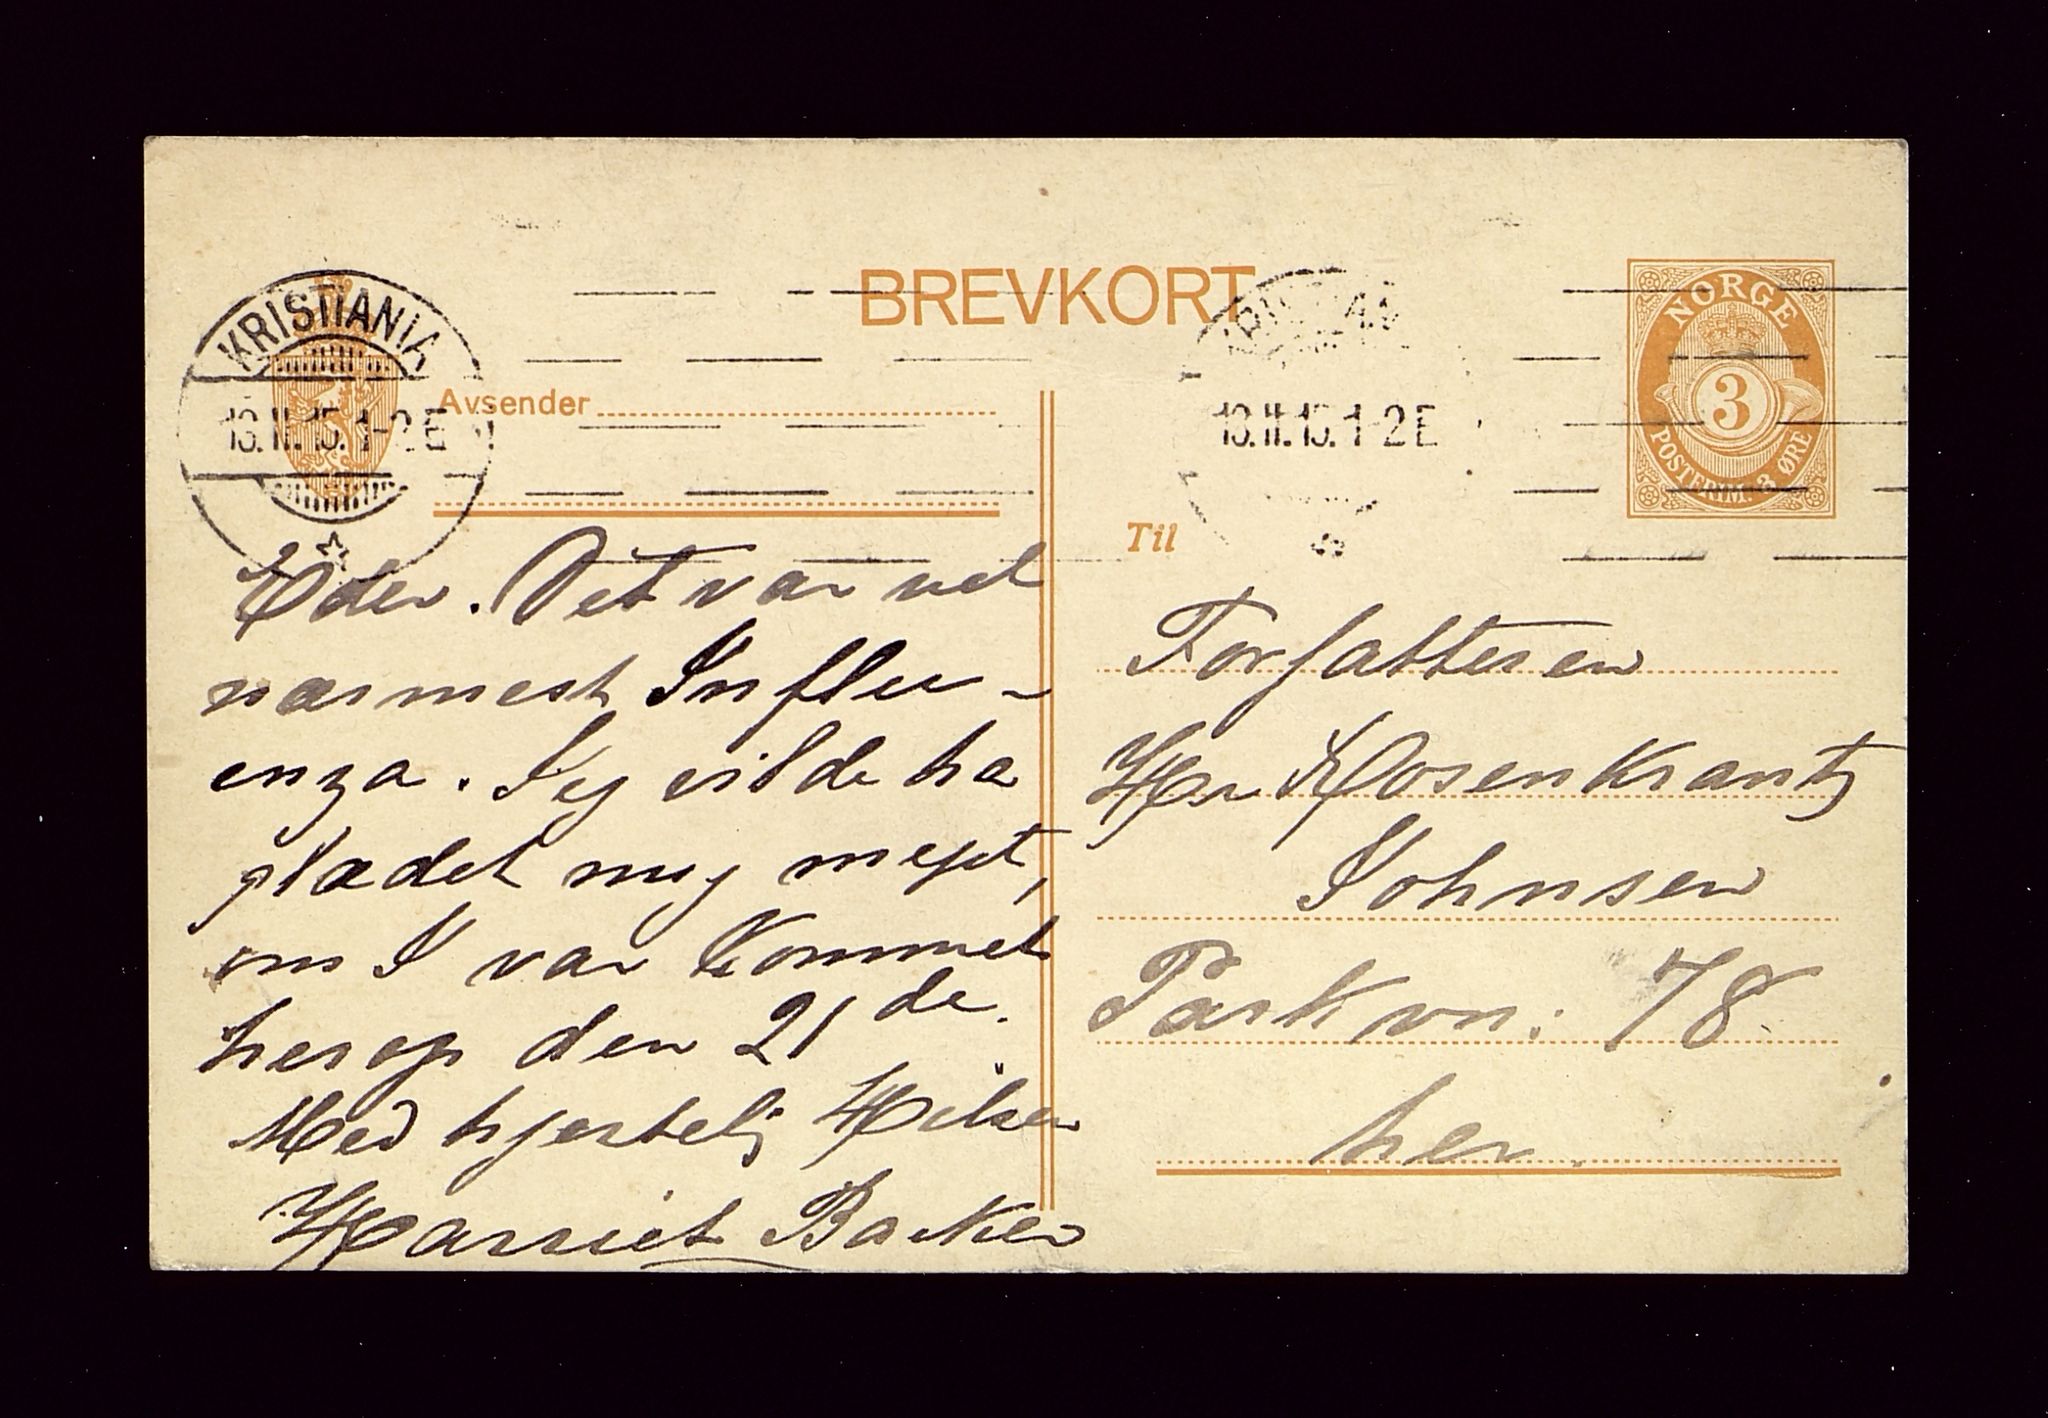 BREVKORT
KRISTIANIA
Avsender
NORGE
3
POSTFRIM. 3 ØRE
Eder. Det var vel
nærmest Influ-
enza. Jeg vilde ha
glædet mig meget,
om I var kommet
herop den 21de.
Med hjertelig Hilsen
Harriet Backer
Til
Forfatteren
Hr Rosenkrantz
Johnsen
Parkvn: 78.
her.